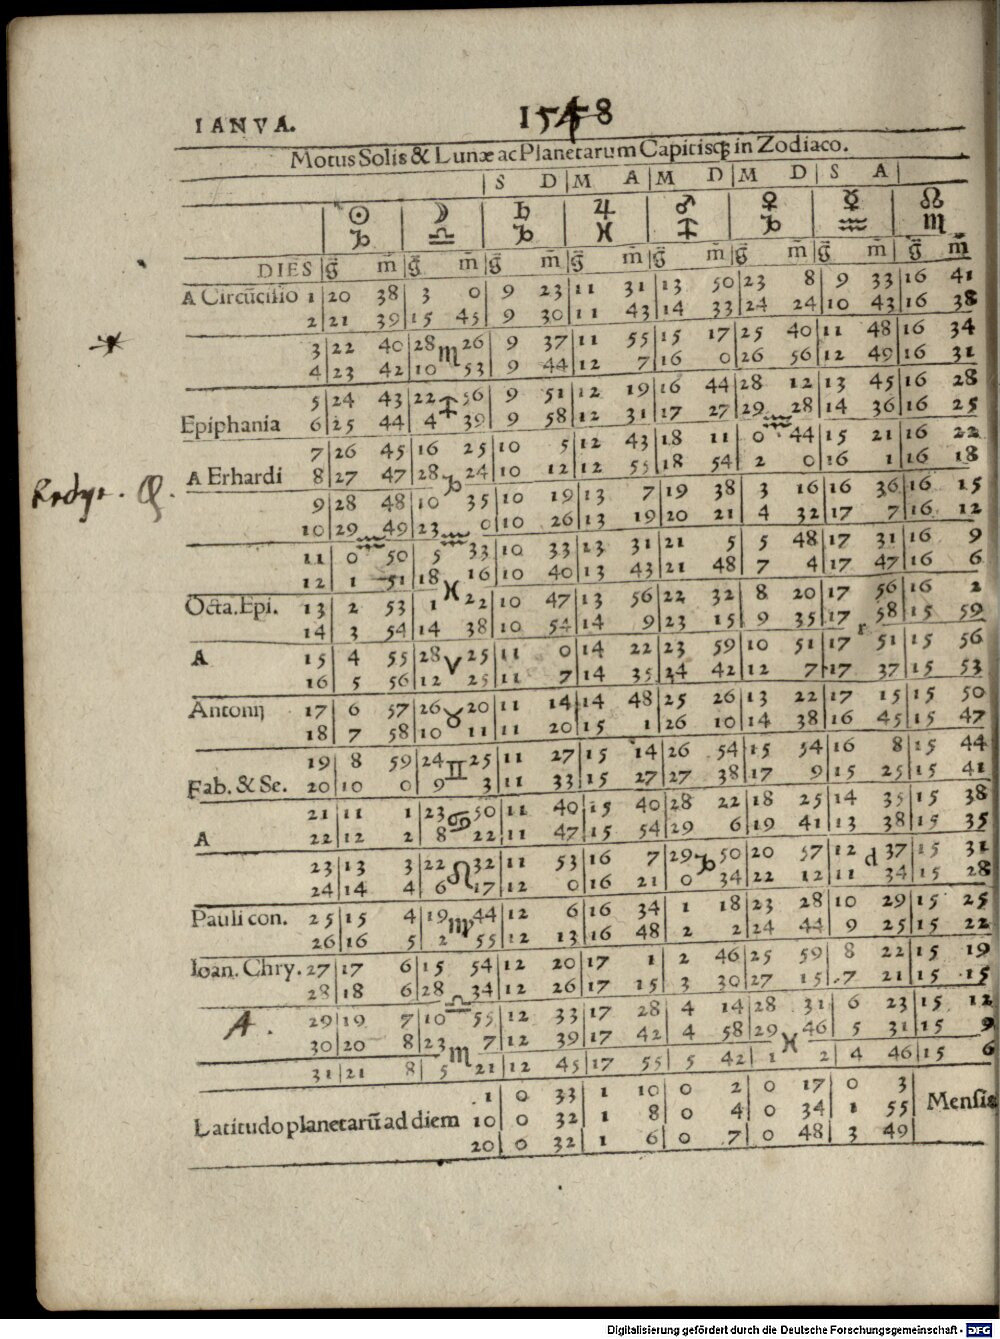 IANVA. 1548
Motus Solis & Lunæ ac Planetarum Capitisq̃ in Zodiaco.
S D M A M D M D S A
☉ ☽ ♄ ♃ ♂ ♀ ☿ ☊
♑ ♎ ♑ ♓ ♐ ♑ ♒ ♏
DIES g̃ m̃ g̃ m̃ g̃ m̃ g̃ m̃ g̃ m̃ g̃ m̃ g̃ m̃ g̃ m̃
A Circũcisio 1 20 38 3 0 9 23 11 31 13 50 23 8 9 33 16 41
2 21 39 15 45 9 30 11 43 14 33 24 24 10 43 16 38
3 22 40 28 ♏ 26 9 37 11 55 15 17 25 40 11 48 16 34
4 23 42 10 53 9 44 12 7 16 0 26 56 12 49 16 31
5 24 43 22 ♐ 56 9 51 12 19 16 44 28 12 13 45 16 28
Epiphania 6 25 44 4 39 9 58 12 31 17 27 29 28 14 36 16 25
7 26 45 16 25 10 5 12 43 18 11 0 ♒ 44 15 21 16 22
A Erhardi 8 27 47 28 ♑ 24 10 12 12 55 18 54 2 0 16 1 16 18
9 28 48 10 35 10 19 13 7 19 38 3 16 16 36 16 15
10 29 49 23 ♒ 0 10 26 13 19 20 21 4 32 17 7 16 12
11 0 ♒ 50 5 33 10 33 13 31 21 5 5 48 17 31 16 9
12 1 51 18 ♓ 16 10 40 13 43 21 48 7 4 17 47 16 6
Octa. Epi. 13 2 53 1 22 10 47 13 56 22 32 8 20 17 56 16 2
14 3 54 14 38 10 54 14 9 23 15 9 35 17 r 58 15 59
A 15 4 55 28 ♈ 25 11 0 14 22 23 59 10 51 17 51 15 56
16 5 56 12 25 11 7 14 35 24 42 12 7 17 37 15 53
Antonij 17 6 57 26 ♉ 20 11 14 14 48 25 26 13 22 17 15 15 50
18 7 58 10 11 11 20 15 1 26 10 14 38 16 45 15 47
19 8 59 24 ♊ 25 11 27 15 14 26 54 15 54 16 8 15 44
Fab. & Se. 20 10 0 9 3 11 33 15 27 27 38 17 9 15 25 15 41
21 11 1 23 ♋ 50 11 40 15 40 28 22 18 25 14 35 15 38
A 22 12 2 8 22 11 47 15 54 29 6 19 41 13 38 15 35
23 13 3 22 ♌ 32 11 53 16 7 29 ♑ 50 20 57 12 d 37 15 31
24 14 4 6 17 12 0 16 21 0 34 22 12 11 34 15 28
Pauli con. 25 15 4 19 ♍ 44 12 6 16 34 1 18 23 28 10 29 15 25
26 16 5 2 55 12 13 16 48 2 2 24 44 9 25 15 22
Ioan. Chry. 27 17 6 15 54 12 20 17 1 2 46 25 59 8 22 15 19
28 18 6 28 ♎ 34 12 26 17 15 3 30 27 15 7 21 15 15
A. 29 19 7 10 55 12 33 17 28 4 14 28 31 6 23 15 12
30 20 8 23 ♏ 7 12 39 17 42 4 58 29 ♓ 46 5 31 15 9
31 21 8 5 21 12 45 17 55 5 42 1 2 4 46 15 6
1 0 33 1 10 0 2 0 17 0 3
Latitudo planetarũ ad diem 10 0 32 1 8 0 4 0 34 1 55 Mensis
20 0 32 1 6 0 7 0 48 3 49
Digitalisierung gefördert durch die Deutsche Forschungsgemeinschaft - DFG